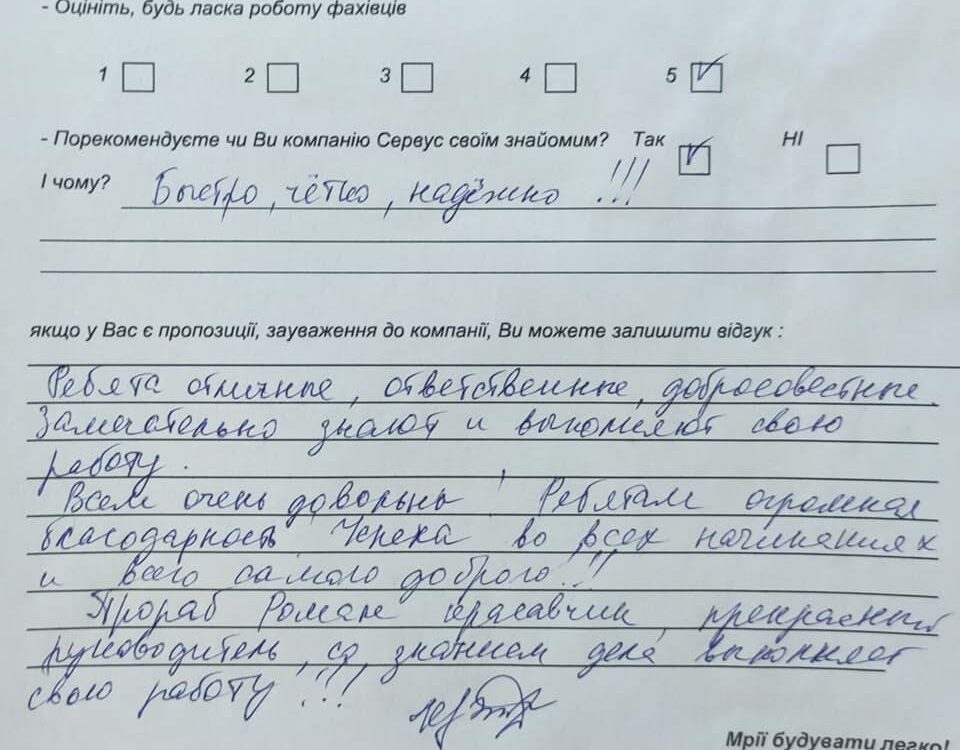 - Оцініть, будь ласка роботу фахівців
1 2 3 4 5
- Порекомендуєте чи Ви компанію Сервус своїм знайомим? Так НІ
І чому? Быстро, чётко, надёжно !!!
якщо у Вас є пропозиції, зауваження до компанії, Ви можете залишити відгук :
Ребята отличные, ответственные, добросовестные.
Замечательно знают и выполняют свою
работу.
Всем очень довольны! Ребятам огромная
благодарность. Успеха во всех начинаниях
и всего самого доброго!!!
Прораб Роман красавчик, прекрасный
руководитель, со знанием дела выполняет
свою работу!!!
Мрії будувати легко!